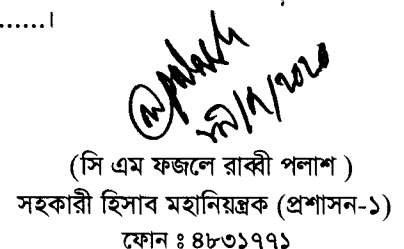 ......।
(সি এম ফজলে রাব্বী পলাশ )
সহকারী হিসাব মহানিয়ন্ত্রক (প্রশাসন-১)
ফোন ঃ ৪৮৩১৭৭১